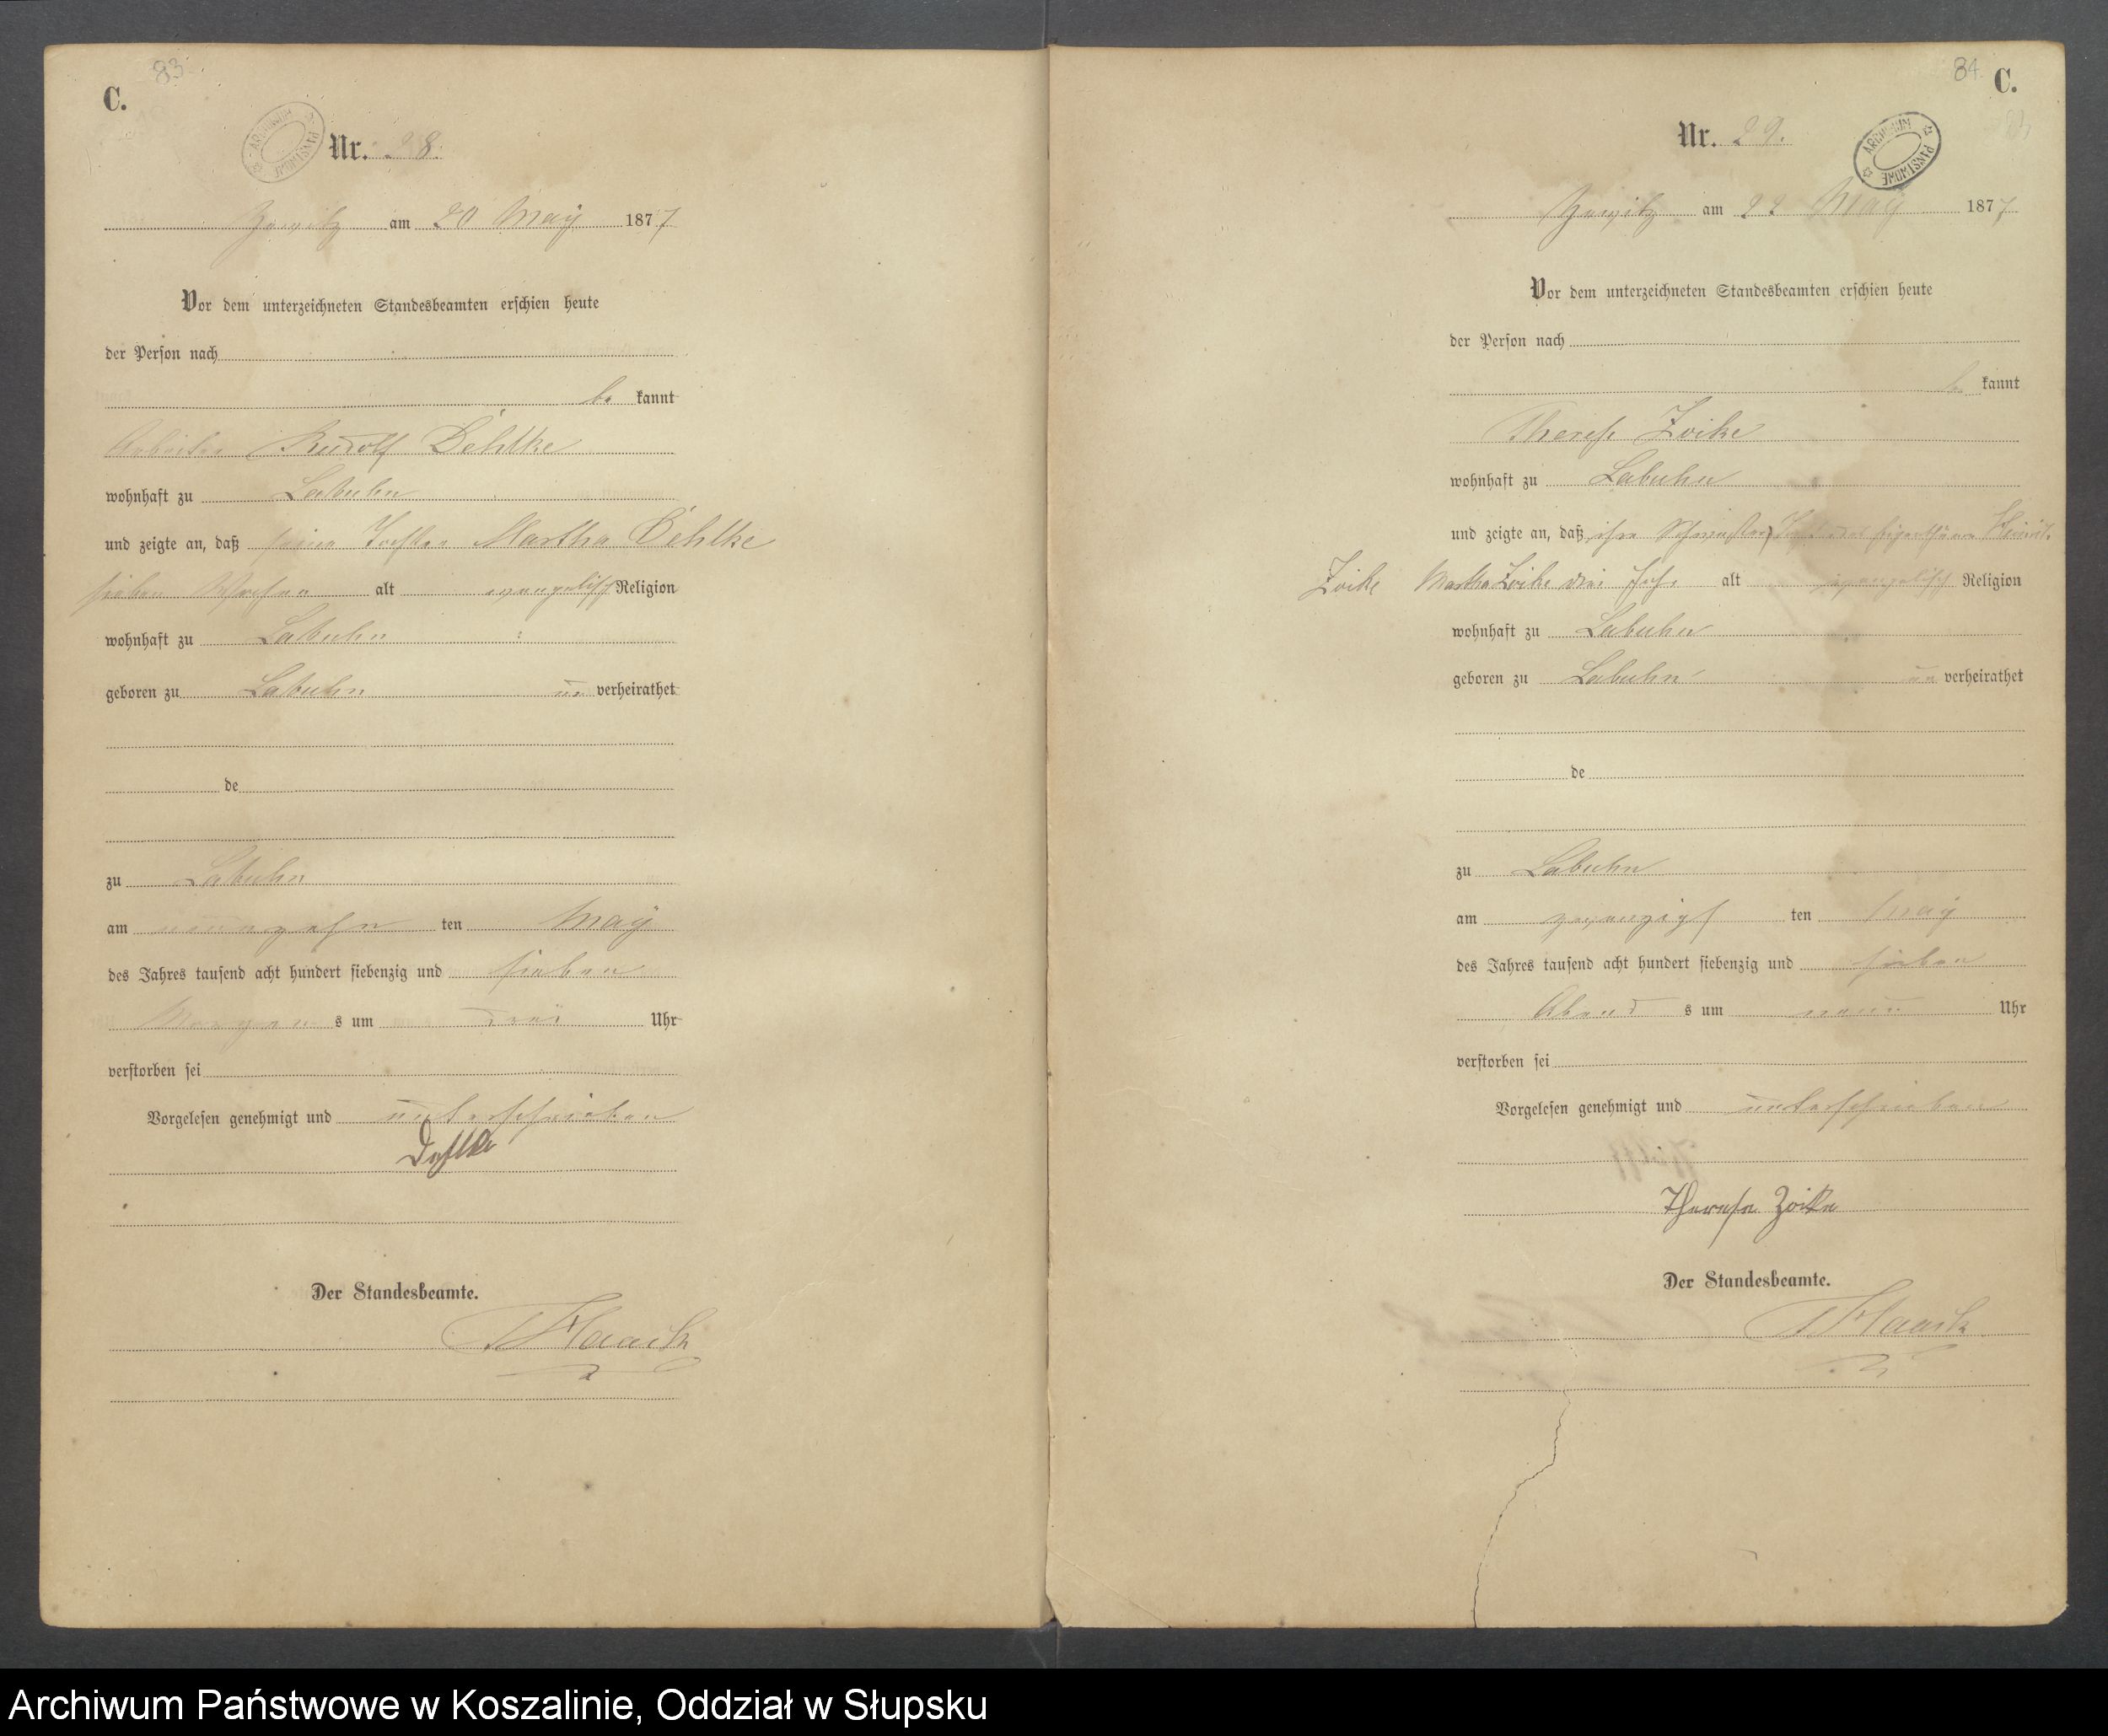 83
C.
ARCHIWUM PAŃSTWOWE
Nr. 28.
Zewitz am 20 May 1877
Vor dem unterzeichneten Standesbeamten erschien heute
der Person nach
be kannt
Arbeiter Rudolf Dehlke
wohnhaft zu Labuhn
und zeigte an, daß seine Tochter Martha Dehlke
sieben Wochen alt evangelisch Religion
wohnhaft zu Labuhn
geboren zu Labuhn un verheirathet
de
zu Labuhn
am neunzehn ten May
des Jahres tausend acht hundert siebenzig und sieben
Morgen s um drei Uhr
verstorben sei
Vorgelesen genehmigt und unterschrieben
Dehlke
Der Standesbeamte.
Haack
84
C.
ARCHIWUM PAŃSTWOWE
Nr. 29.
Zewitz am 22 May 1877
Vor dem unterzeichneten Standesbeamten erschien heute
der Person nach
be kannt
Therese Zoike
wohnhaft zu Labuhn
und zeigte an, daß ihre Schwester
Zoike Martha Zoike drei Jahr alt evangelisch Religion
wohnhaft zu Labuhn
geboren zu Labuhn un verheirathet
de
zu Labuhn
am zwanzigs ten May
des Jahres tausend acht hundert siebenzig und sieben
Abend s um neun Uhr
verstorben sei
Vorgelesen genehmigt und unterschrieben
Therese Zoike
Der Standesbeamte.
Haack
Archiwum Państwowe w Koszalinie, Oddział w Słupsku